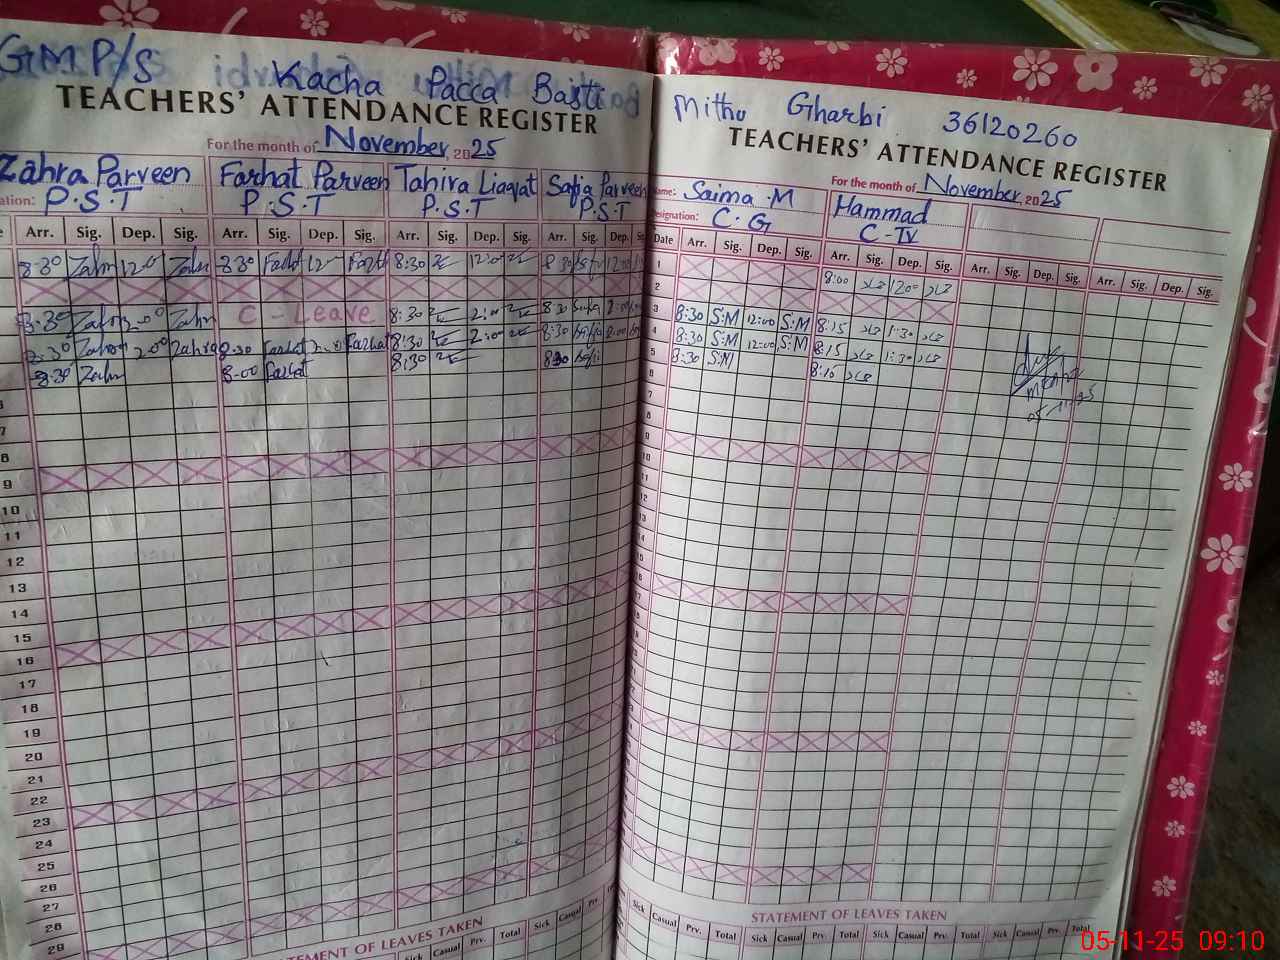 GMP/S Kacha Pacca Basti
TEACHERS' ATTENDANCE REGISTER
For the month of November, 2025
Zahra Parveen Farhat Parveen Tahira Liaqat Safia Parveen
ation: P.S.T P.S.T P.S.T P.S.T
Arr. Sig. Dep. Sig. Arr. Sig. Dep. Sig. Arr. Sig. Dep. Sig. Arr. Sig. Dep.
8:30 Zahra 12:0 Zahra 8:30 8:30 12:0 8:30 12:00
8:30 Zahra 2:00 Zahra C - Leave 8:30 2:00 8:30 Safia 2:00
8:30 Zahra 2:00 Zahra 8:30 Farhat 2:0 Farhat 8:30 2:00 8:30 2:00
8:30 Zahra 8:00 Farhat 8:30 8:30
7
8
9
10
11
12
13
14
15
16
17
18
19
20
21
22
23
24
25
26
27
28
29
STATEMENT OF LEAVES TAKEN
Casual Prv. Total Sick Casual Prv.
Mithu Gharbi 36120260
TEACHERS' ATTENDANCE REGISTER
For the month of November, 2025
Name: Saima .M Hammad
Designation: C.G C-IV
Date Arr. Sig. Dep. Sig. Arr. Sig. Dep. Sig. Arr. Sig. Dep. Sig. Arr. Sig. Dep. Sig.
1 8:00 12:00
2
3 8:30 S:M 12:00 S:M 8:15 1:30
4 8:30 S:M 12:00 S:M 8:15 1:30
5 8:30 S:M 8:10
6
7
8
9
10
11
12
13
14
15
16
05-11-25
STATEMENT OF LEAVES TAKEN
Sick Casual Prv. Total Sick Casual Prv. Total Sick Casual Prv. Total Sick Casual Prv. Total
05-11-25 09:10